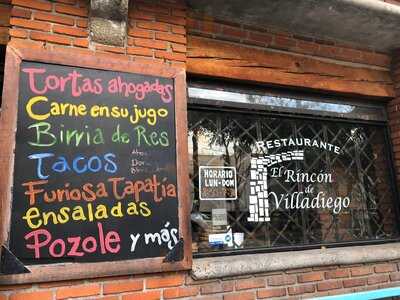 Tortas ahogadas
Carne en su jugo
Birria de Res
Tacos
Furiosa Tapatía
ensaladas
Pozole y más
HORARIO
LUN-DOM
RESTAURANTE
El Rincón
de
Villadiego